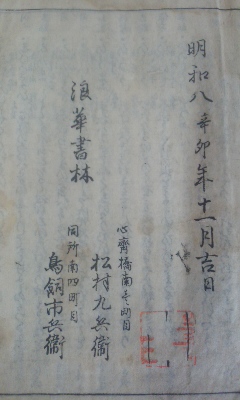 明和八辛卯年十一月吉日
浪華書林
心齊橋南壱町目
松村九兵衞
同所南四町目
鳥飼市兵衞